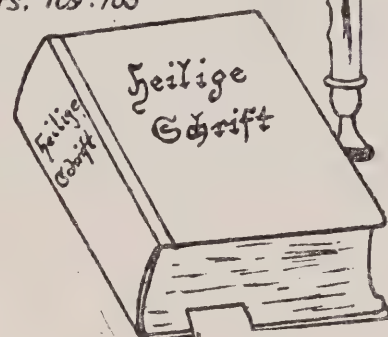 Heilige
Schrift
Heilige
Schrift